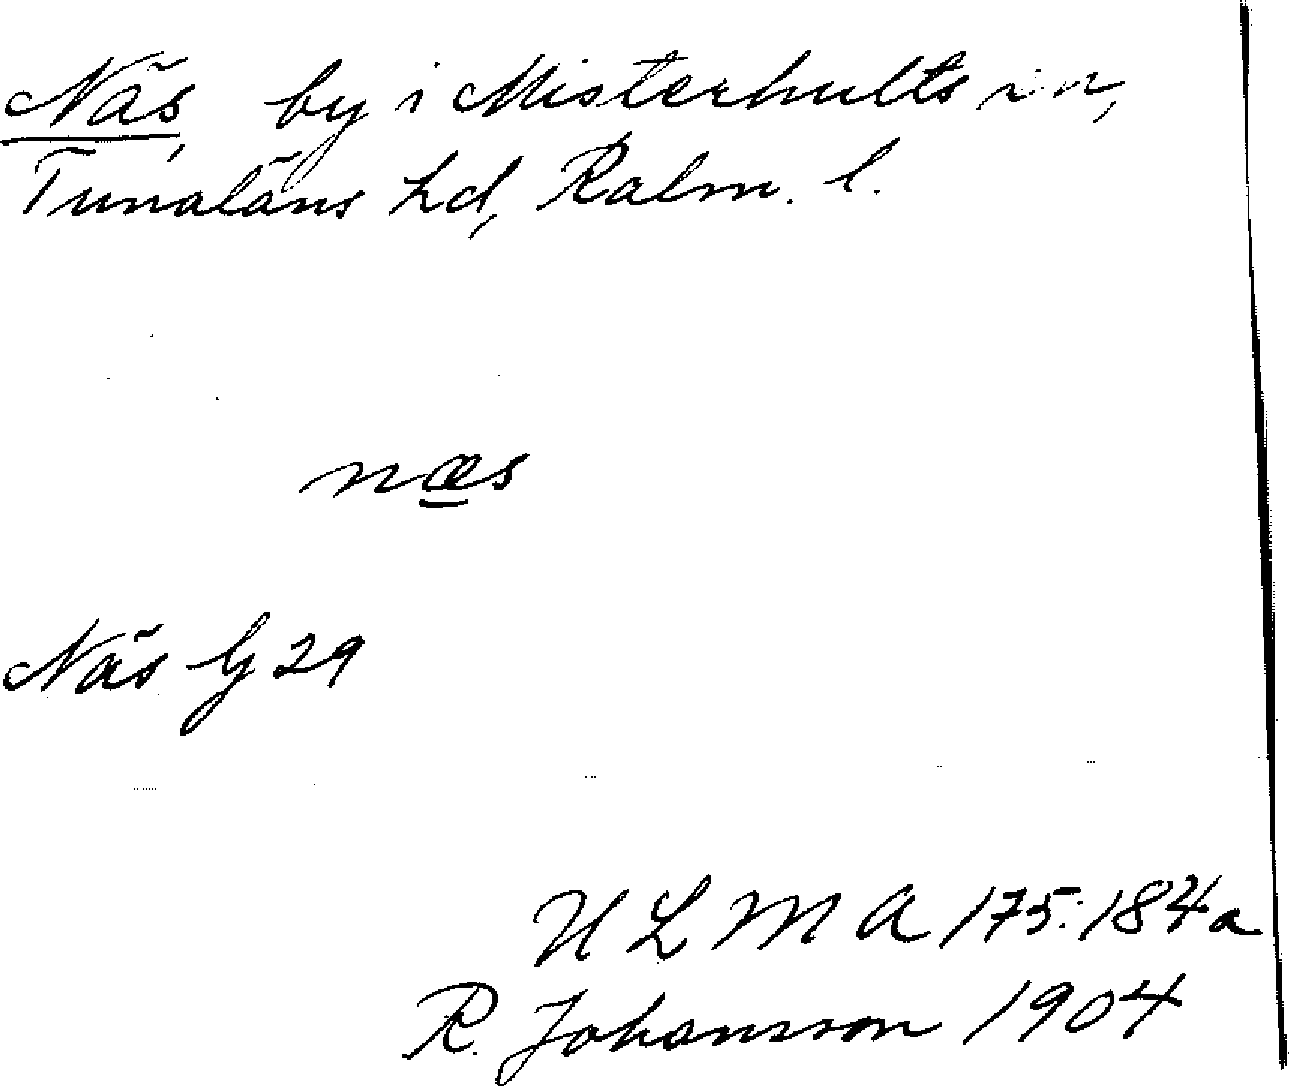 Näs, by i Misterhults sn,
Tunaläns hd, Kalm. l.
næs
Näs G 29
ULMA 175:184a
R. Johansson 1904